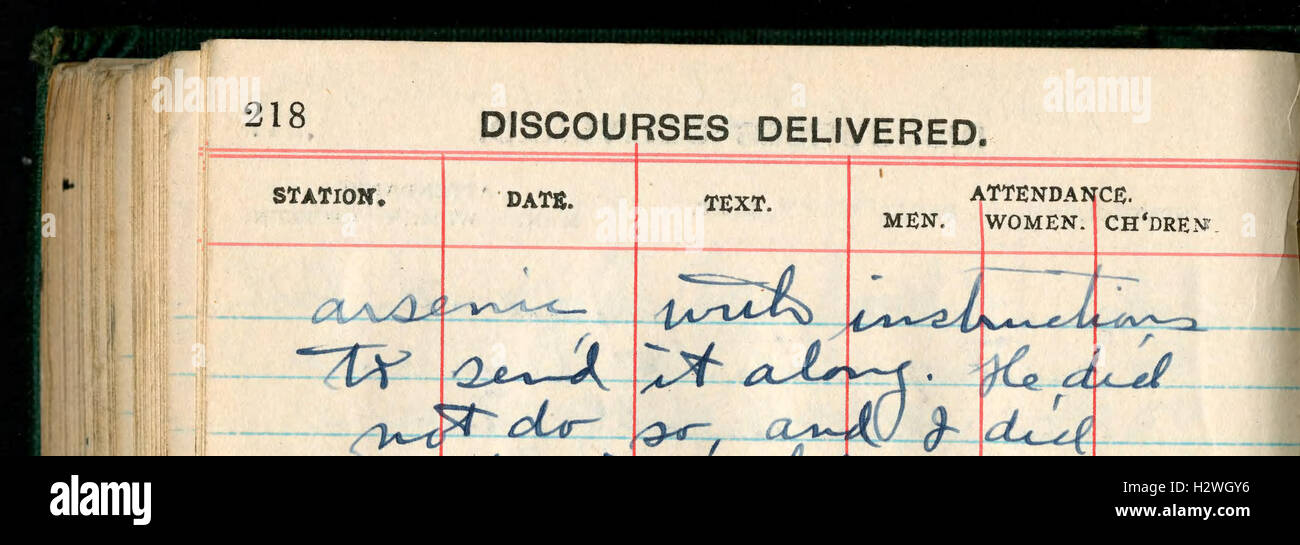 218
DISCOURSES DELIVERED.
STATION. DATE. TEXT. ATTENDANCE.
MEN. WOMEN. CH'DREN.
arsenic with instructions
to send it along. He did
not do so, and I did
alamy stock photo
H2WGY6
www.alamy.com